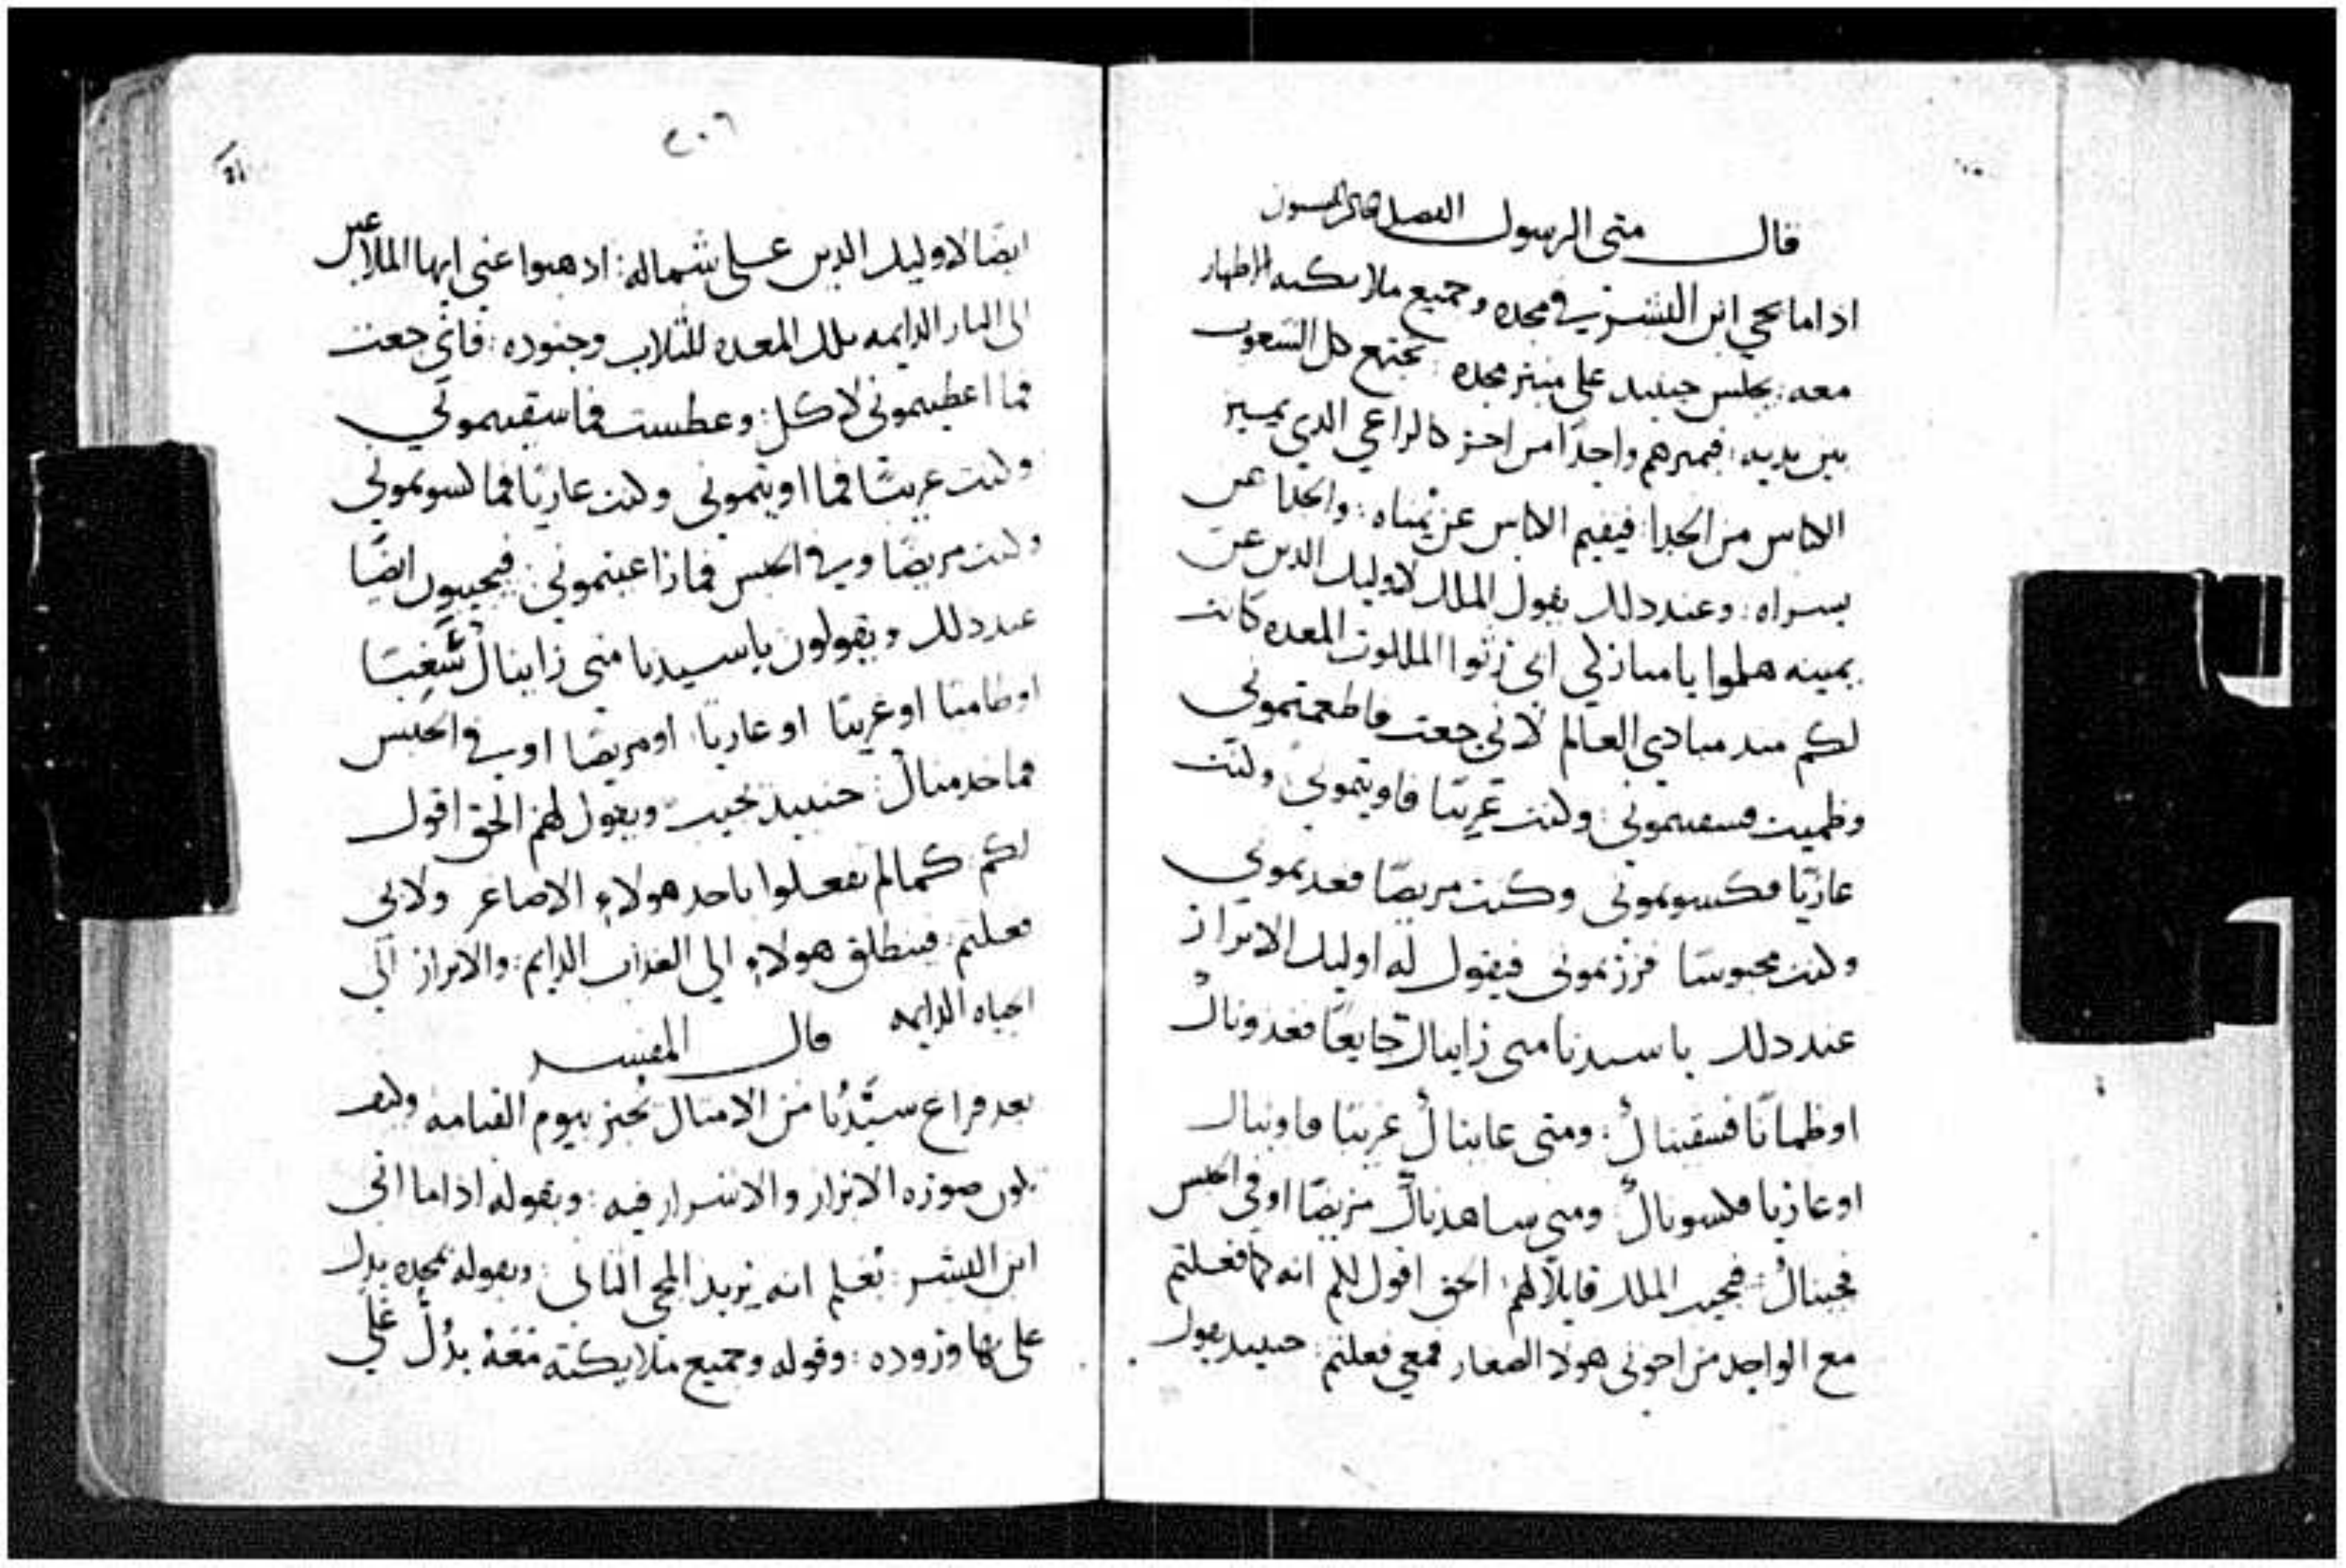 قال متى الرسول الفصل
اذا ما يجي ابن البشر في مجده وجميع ملايكته الاطهار
معه: يجلس حينيد على منبر مجده: تجتمع كل الشعوب
بين يديه: فيميزهم واحدًا من اخر كالراعي الذي يميز
الكباش من الجدا: فيقيم الكباش عن يمناه: والجدا عن
يسراه: وعند دلك يقول الملك لاوليك الدين عن
يمينه هلموا يا مباركي ابي رثوا الملكوت المعده كانت
لكم مند مبادي العالم لاني جعت فاطعمتموني
وظميت فسقيتموني: وكنت غريبًا فاويتموني وكنت
عاريًا فكسوتموني وكنت مريضًا فعدتموني
وكنت محبوسًا فزرتموني فيقول له اوليك الابرار
عند دلك يا سيدنا متى رايناك جايعًا فغدوناك
او ظمانًا فسقيناك: ومتى عايناك غريبًا فاويناك
او عاريًا فكسوناك: ومتى ساهدناك مريضًا او في الحبس
فجيناك: فيجيب الملك قايلًا لهم: الحق اقول لكم انه كما فعلتم
مع الواحد من اخوتي هولا الصغار فمعي فعلتم: حينيد يقول
٢٠٦
ايضًا لاوليك الدين على شماله: ادهبوا عني ايها الملاعين
الى النار الدايمه تلك المعده للثلاب وجنوده: فاني جعت
فما اعطيتموني لاكل: وعطست فما سقيتموني
وكنت غريبًا فما اويتموني وكنت عاريًا فما كسوتموني
وكنت مريضًا وفي الحبس فما داعيتموني: فيجيبون ايضًا
عند دلك ويقولون يا سيدنا متى رايناك سغبًا
او ظاميًا او غريبًا او عاريًا او مريضًا او في الحبس
فما خدمناك: حينيد يجيب ويقول لهم الحق اقول
لكم: كما لم تفعلوا باحد هولاء الاصاغر ولا بي
فعلتم: فينطلق هولاء الى العذاب الدايم: والابرار الى
الحياه الدايمه قال المفسر
بعد فراغ سيدنا من الامثال يخبر بيوم القيامه وكيف
تكون صوره الابرار والاشرار فيه: وبقوله ادا ما اتى
ابن البشر: نعلم انه يريد المجي الثاني: وبقوله بمجده يدل
على وروده: وقوله وجميع ملايكته معه يدل على